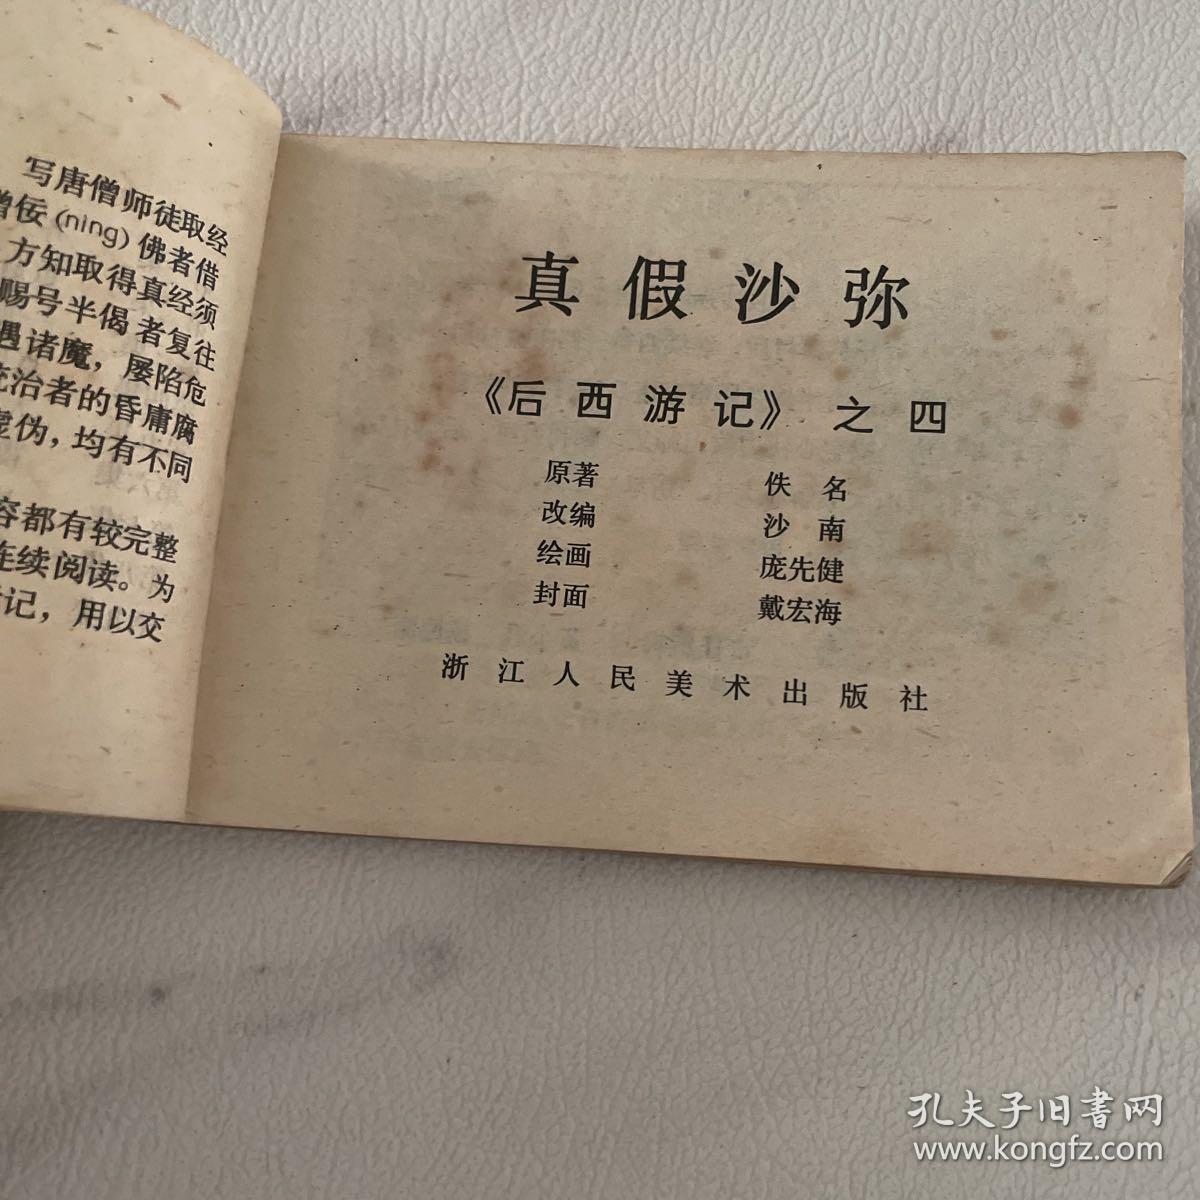 写唐僧师徒取经
僧佞(ning)佛者借
方知取得真经须
赐号半偈者复往
遇诸魔，屡陷危
统治者的昏庸腐
虚伪，均有不同
容都有较完整
连续阅读。为
记，用以交
真假沙弥
《后西游记》之四
原著 佚名
改编 沙南
绘画 庞先健
封面 戴宏海
浙江人民美术出版社
孔夫子旧书网
www.kongfz.com